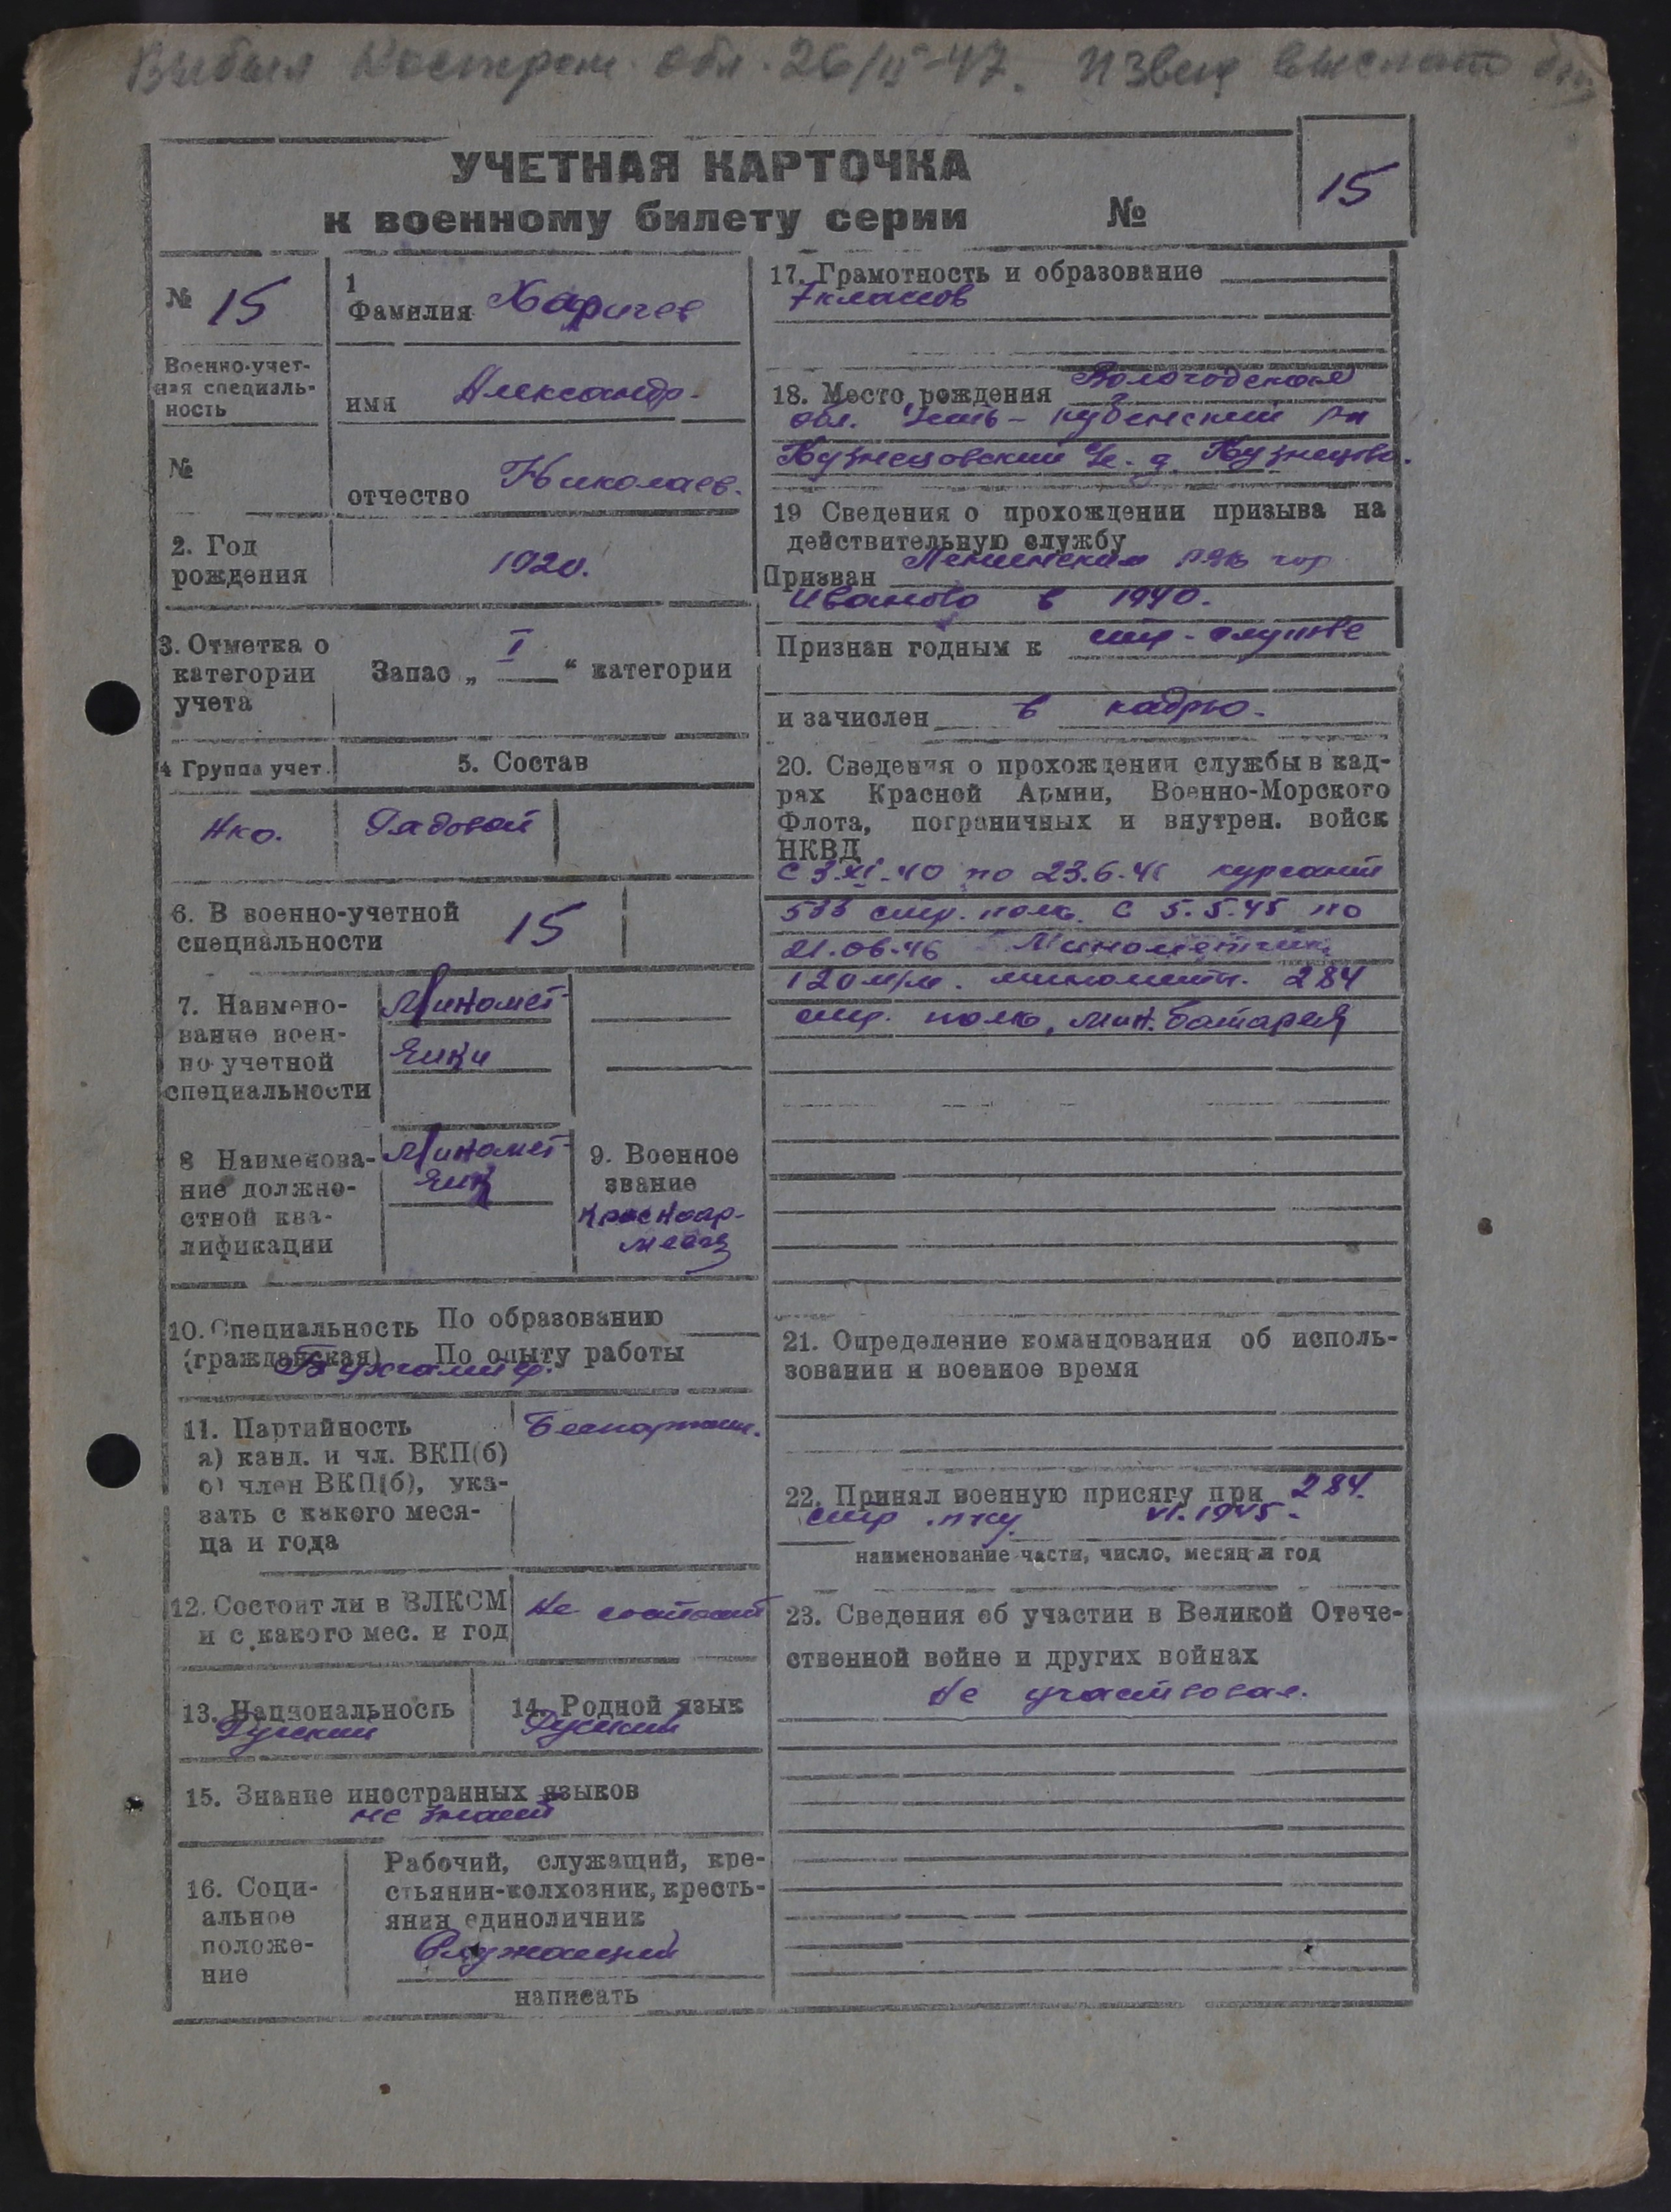 Выбыл Костром. обл. 26/II-47. Извещ выслать
УЧЕТНАЯ КАРТОЧКА
к военному билету серии №
15
№ 15
Военно-учет-
ная специаль-
ность
№
1
Фамилия Харичев
имя Александр.
отчество Николаев.
2. Год
рождения
1920.
3. Отметка о
категории
учета
Запас „ I “ категории
4 Группа учет.
5. Состав
Нко.
Рядовой
6. В военно-учетной
специальности
15
7. Наимено-
вание воен-
но-учетной
специальности
Миномет-
чики
8 Наименова-
ние должно-
стной ква-
лификации
Миномет-
чик
9. Военное
звание
Красноар-
меец
10. Специальность По образованию
(гражданская) По опыту работы
Бухгалтер.
11. Партийность
а) канд. и чл. ВКП(б)
б) член ВКП(б), ука-
зать с какого меся-
ца и года
Беспартийн.
12. Состоит ли в ВЛКСМ
и с какого мес. и год
Не состоит
13. Национальность
Русский
14. Родной язык
Русский
15. Знание иностранных языков
не знает
16. Соци-
альное
положе-
ние
Рабочий, служащий, кре-
стьянин-колхозник, кресть-
янин единоличник
Служащий
написать
17. Грамотность и образование
7 классов
18. Место рождения Вологодская
обл. Усть-Кубенский р-н
Кузнецовский с. д. Кузнецово.
19 Сведения о прохождении призыва на
действительную службу
Призван Ленинским РВК гор
Иваново в 1940.
Признан годным к стр. службе
и зачислен в кадры.
20. Сведения о прохождении службы в кад-
рах Красной Армии, Военно-Морского
Флота, пограничных и внутрен. войск
НКВД
С 3.XI.40 по 23.6.41 курсант
533 стр. полк. С 5.5.45 по
21.06.46 Минометчик
120 м/м. миномётн. 284
стр. полк, мин. батарея
21. Определение командования об исполь-
зовании и военное время
22. Принял военную присягу при 284.
стр. пку. VI. 1945.
наименование части, число, месяц и год
23. Сведения об участии в Великой Отече-
ственной войне и других войнах
Не участвовал.